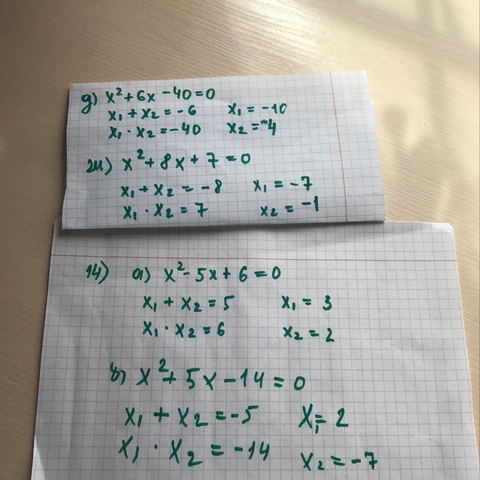 g) x² + 6x - 40 = 0
x₁ + x₂ = -6 x₁ = -10
x₁ · x₂ = -40 x₂ = 4
x² + 8x + 7 = 0
x₁ + x₂ = -8 x₁ = -7
x₁ · x₂ = 7 x₂ = -1
14) a) x² - 5x + 6 = 0
x₁ + x₂ = 5 x₁ = 3
x₁ · x₂ = 6 x₂ = 2
b) x² + 5x - 14 = 0
x₁ + x₂ = -5 x₁ = 2
x₁ · x₂ = -14 x₂ = -7